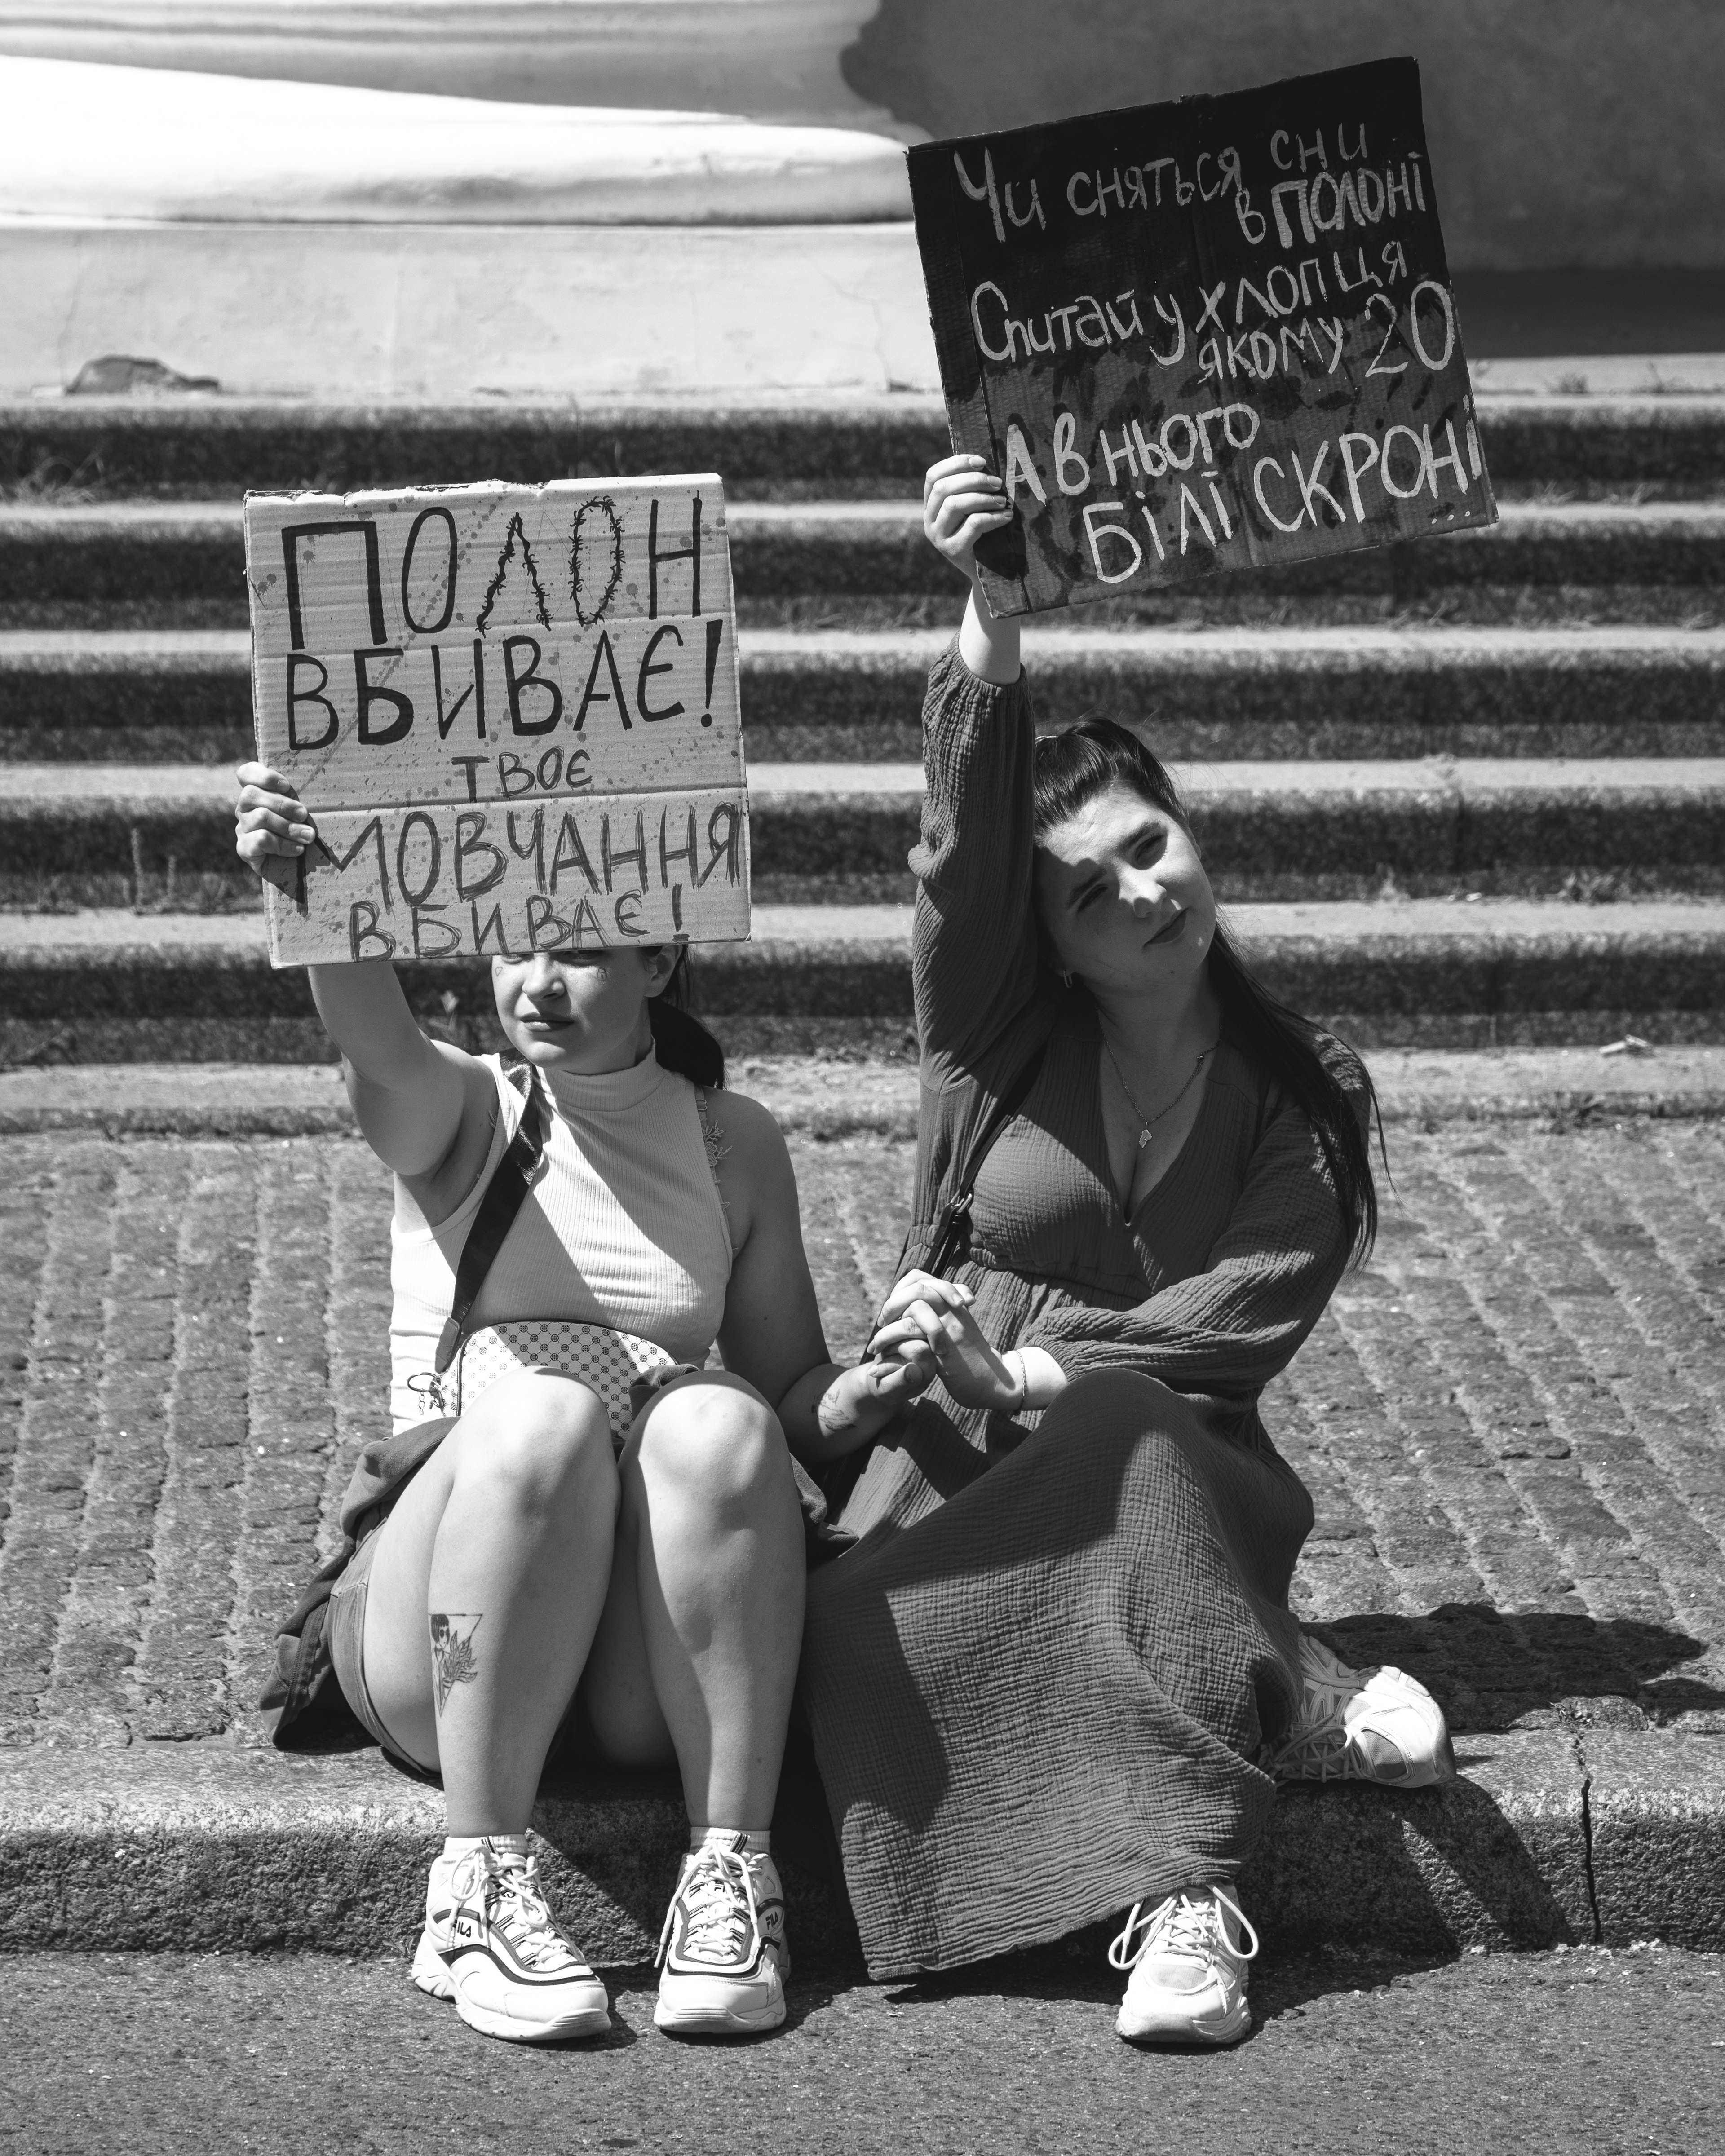 ПОЛОН
ВБИВАЄ!
ТВОЄ
МОВЧАННЯ
ВБИВАЄ!
Чи сняться сни
в полоні
Спитай у хлопця
якому 20
А в нього
білі скроні
...
FILA
FILA